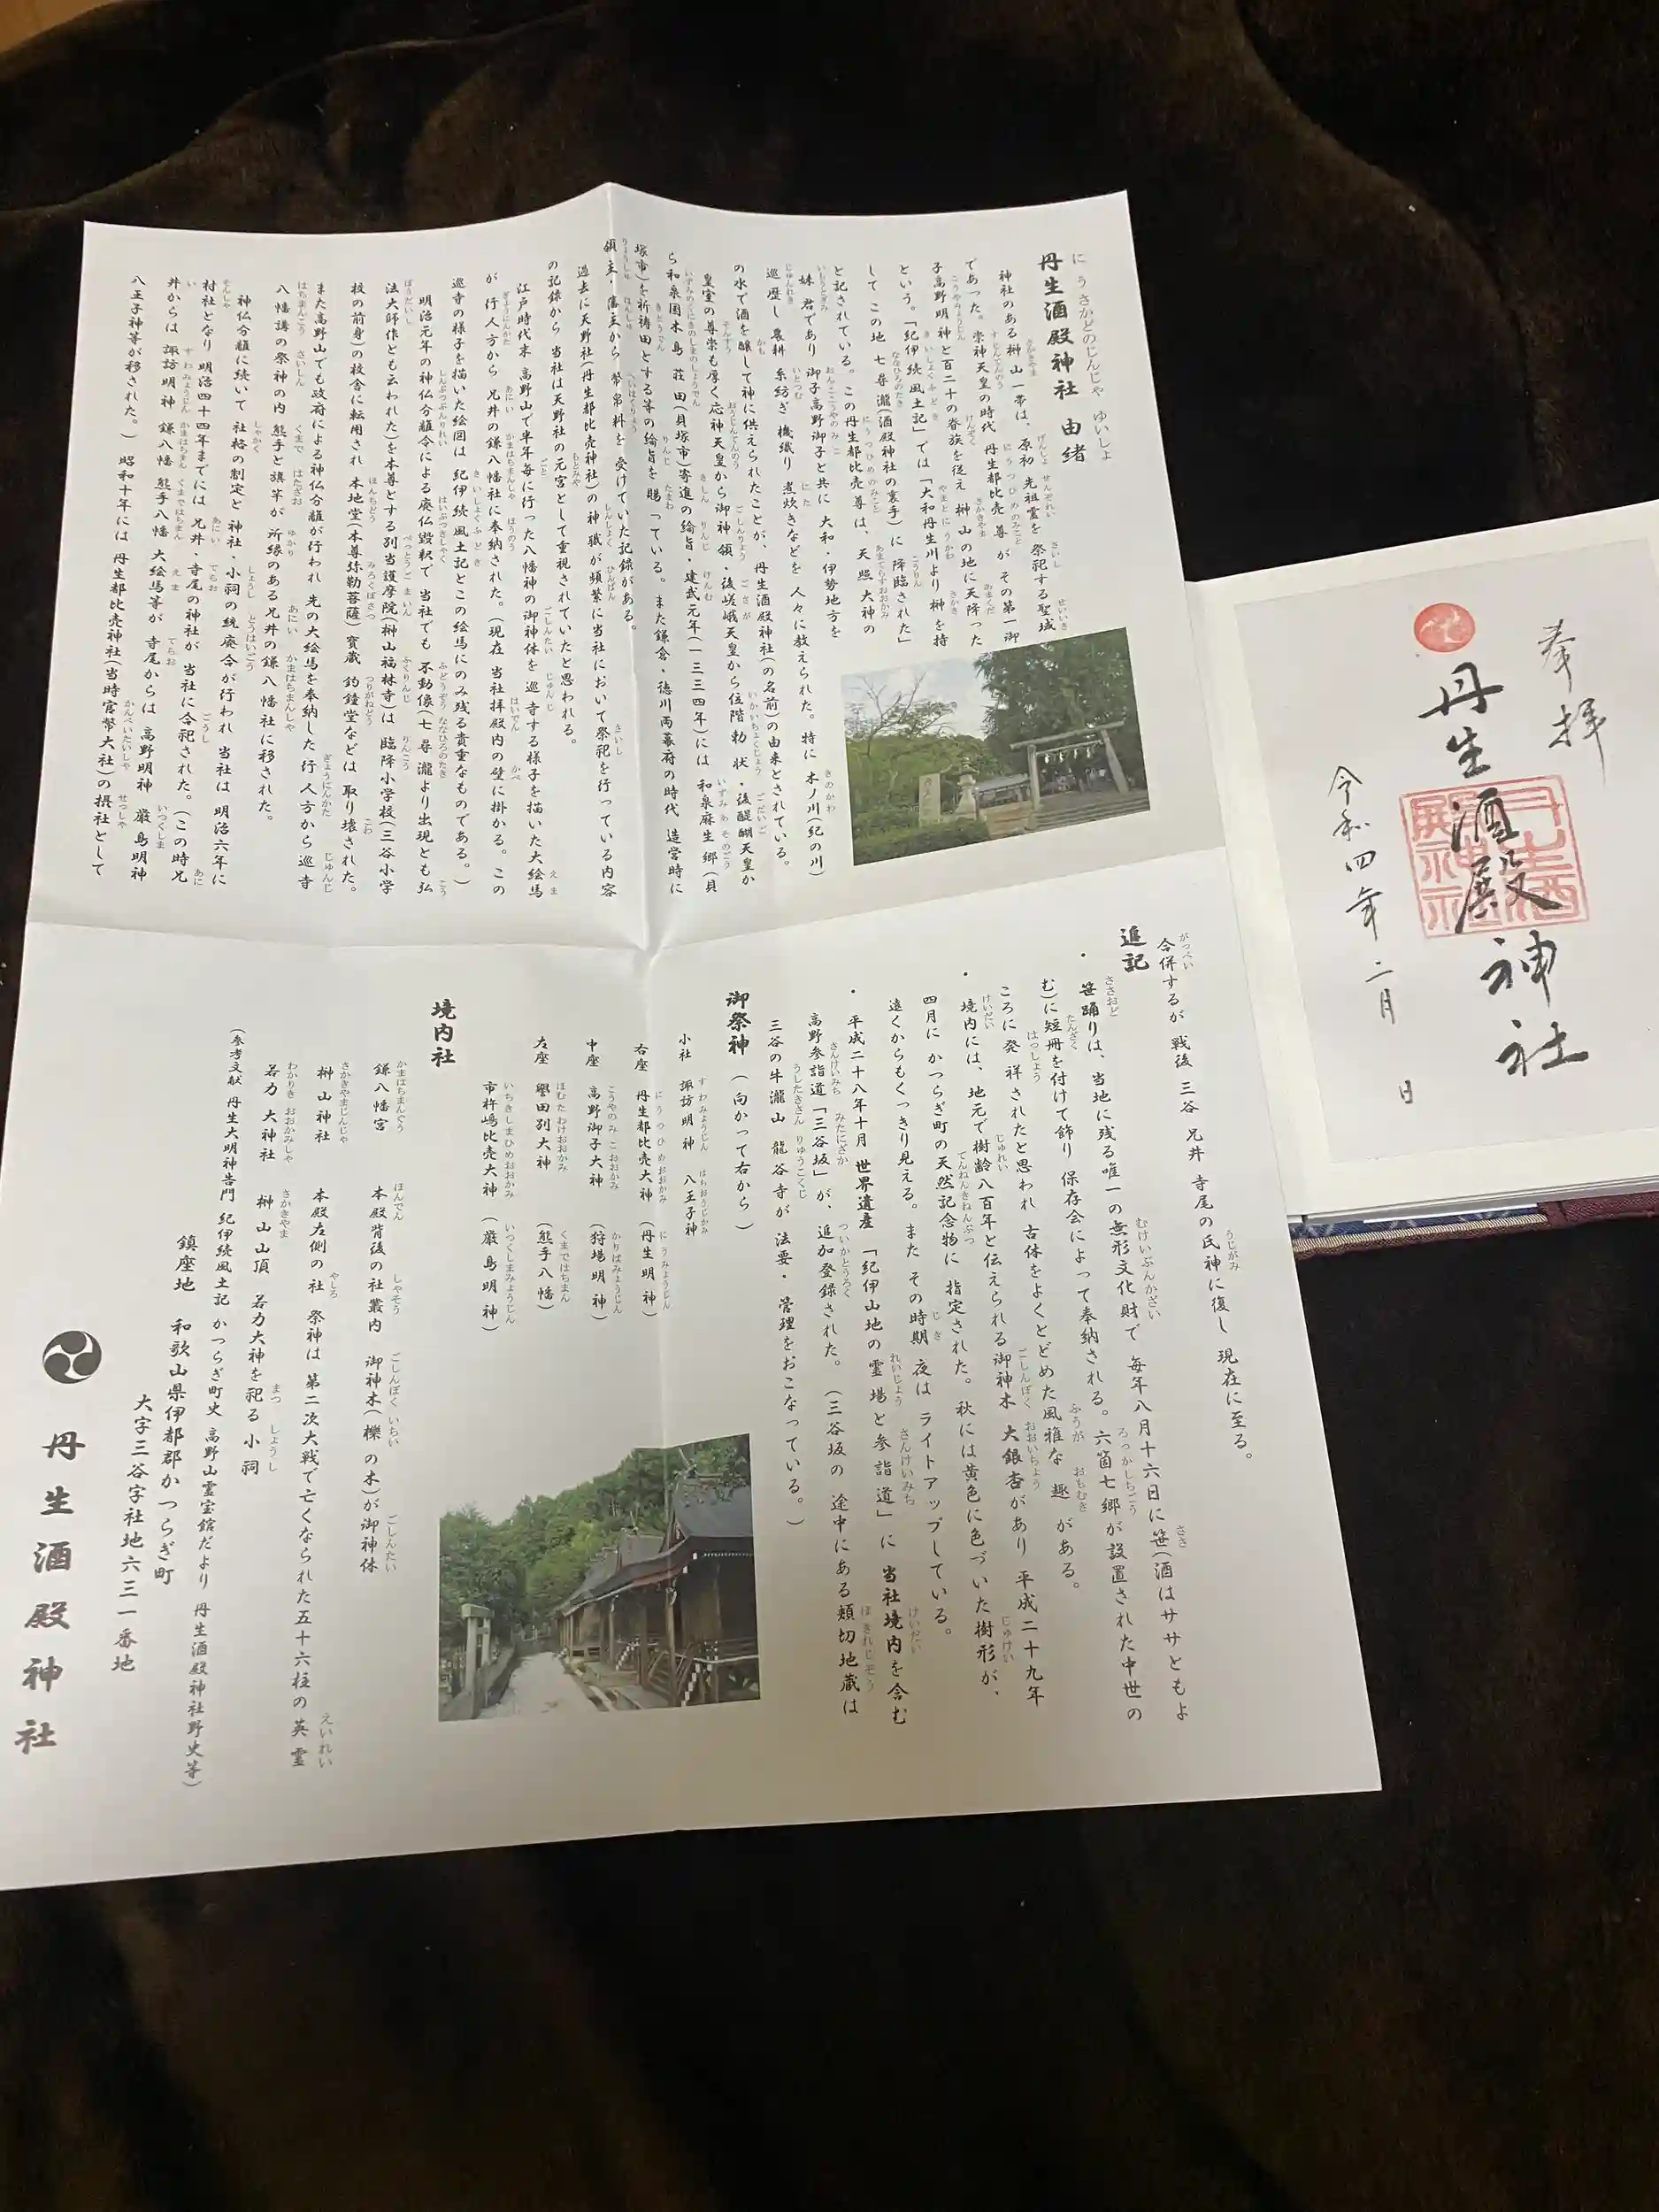 丹生酒殿神社 由緒
神社のある榊山一帯は、原初 先祖霊を 祭祀する聖域
であった。崇神天皇の時代 丹生都比売尊が その第一御
子高野明神と百二十の眷族を従え 榊山の地に天降った
という。「紀伊続風土記」では「大和丹生川より 榊を持
して この地 七尋瀧(酒殿神社の裏手)に 降臨された」
と記されている。この丹生都比売尊は、天照大神の
妹君であり 御子高野御子と共に 大和・伊勢地方を
巡歴し 農耕 糸紡ぎ 機織り 煮炊きなどを 人々に教えられた。特に 木ノ川(紀の川)
の水で酒を醸して神に供えられたことが、丹生酒殿神社(の名前)の由来とされている。
皇室の尊崇も厚く応神天皇から御神領・後嵯峨天皇から位階勅状・後醍醐天皇か
ら和泉国木島荘田(貝塚市)寄進の綸旨・建武元年(一三三四年)には 和泉麻生郷(貝
塚市)を祈祷田とする等の綸旨を 賜っている。また鎌倉・徳川両幕府の時代 造営時に
領主・藩主から 幣帛料を 受けていた記録がある。
過去に天野社(丹生都比売神社)の神職が頻繁に当社において祭祀を行っている内容
の記録から 当社は天野社の元宮として重視されていたと思われる。
江戸時代末 高野山で半年毎に行った八幡神の御神体を 巡寺する様子を描いた大絵馬
が 行人方から 兄井の鎌八幡社に奉納された。(現在 当社拝殿内の壁に掛かる。この
巡寺の様子を描いた絵図は 紀伊続風土記とこの絵馬にのみ残る貴重なものである。)
明治元年の神仏分離令による廃仏毀釈で 当社でも 不動像(七尋瀧より出現とも弘
法大師作とも云われた)を本尊とする別当護摩院(榊山福林寺)は 臨降小学校(三谷小学
校の前身)の校舎に転用され 本地堂(本尊弥勒菩薩) 宝蔵 釣鐘堂などは 取り壊された。
また高野山でも政府による神仏分離が行われ 先の大絵馬を奉納した行人方から 巡寺
八幡講の祭神の内 熊手と旗竿が 所縁のある兄井の鎌八幡社に移された。
神仏分離に続いて 社格の制定と 神社・小祠の統廃合が行われ 当社は 明治六年に
村社となり 明治四十四年までには 兄井・寺尾の神社が 当社に合祀された。(この時兄
井からは 諏訪明神 鎌八幡 熊手八幡 大絵馬等が 寺尾からは 高野明神 厳島明神
八王子神等が移された。) 昭和十年には 丹生都比売神社(当時官幣大社)の摂社として
合併するが 戦後 三谷 兄井 寺尾の氏神に復し 現在に至る。
追記
・笹踊りは、当地に残る唯一の無形文化財で 毎年八月十六日に笹(酒はササともよ
む)に短冊を付けて飾り 保存会によって奉納される。六箇七郷が設置された中世の
ころに発祥されたと思われ 古体をよくとどめた風雅な 趣がある。
・境内には、地元で樹齢八百年と伝えられる御神木 大銀杏があり 平成二十九年
四月に かつらぎ町の天然記念物に 指定された。秋には黄色に色づいた樹形が、
遠くからもくっきり見える。また その時期 夜は ライトアップしている。
・平成二十八年十月 世界遺産「紀伊山地の霊場と参詣道」に 当社境内を含む
高野参詣道「三谷坂」が、追加登録された。(三谷坂の 途中にある頬切地蔵は
三谷の牛瀧山 龍谷寺が 法要・管理をおこなっている。)
御祭神 (向かって右から)
小社 諏訪明神 八王子神
右座 丹生都比売大神 (丹生明神)
中座 高野御子大神 (狩場明神)
左座 誉田別大神 (熊手八幡)
市杵嶋比売大神 (厳島明神)
境内社
鎌八幡宮 本殿背後の社叢内 御神木(櫟の木)が御神体
榊山神社 本殿左側の社 祭神は 第二次大戦で亡くなられた五十六柱の英霊
若力大神社 榊山山頂 若力大神を祀る小祠
(参考文献 丹生大明神告門 紀伊続風土記 かつらぎ町史 高野山霊宝館だより 丹生酒殿神社野史等)
鎮座地 和歌山県伊都郡かつらぎ町
大字三谷字社地六三一番地
丹生酒殿神社
奉拝
丹生酒殿神社
丹生酒殿神社
令和四年 二月 日